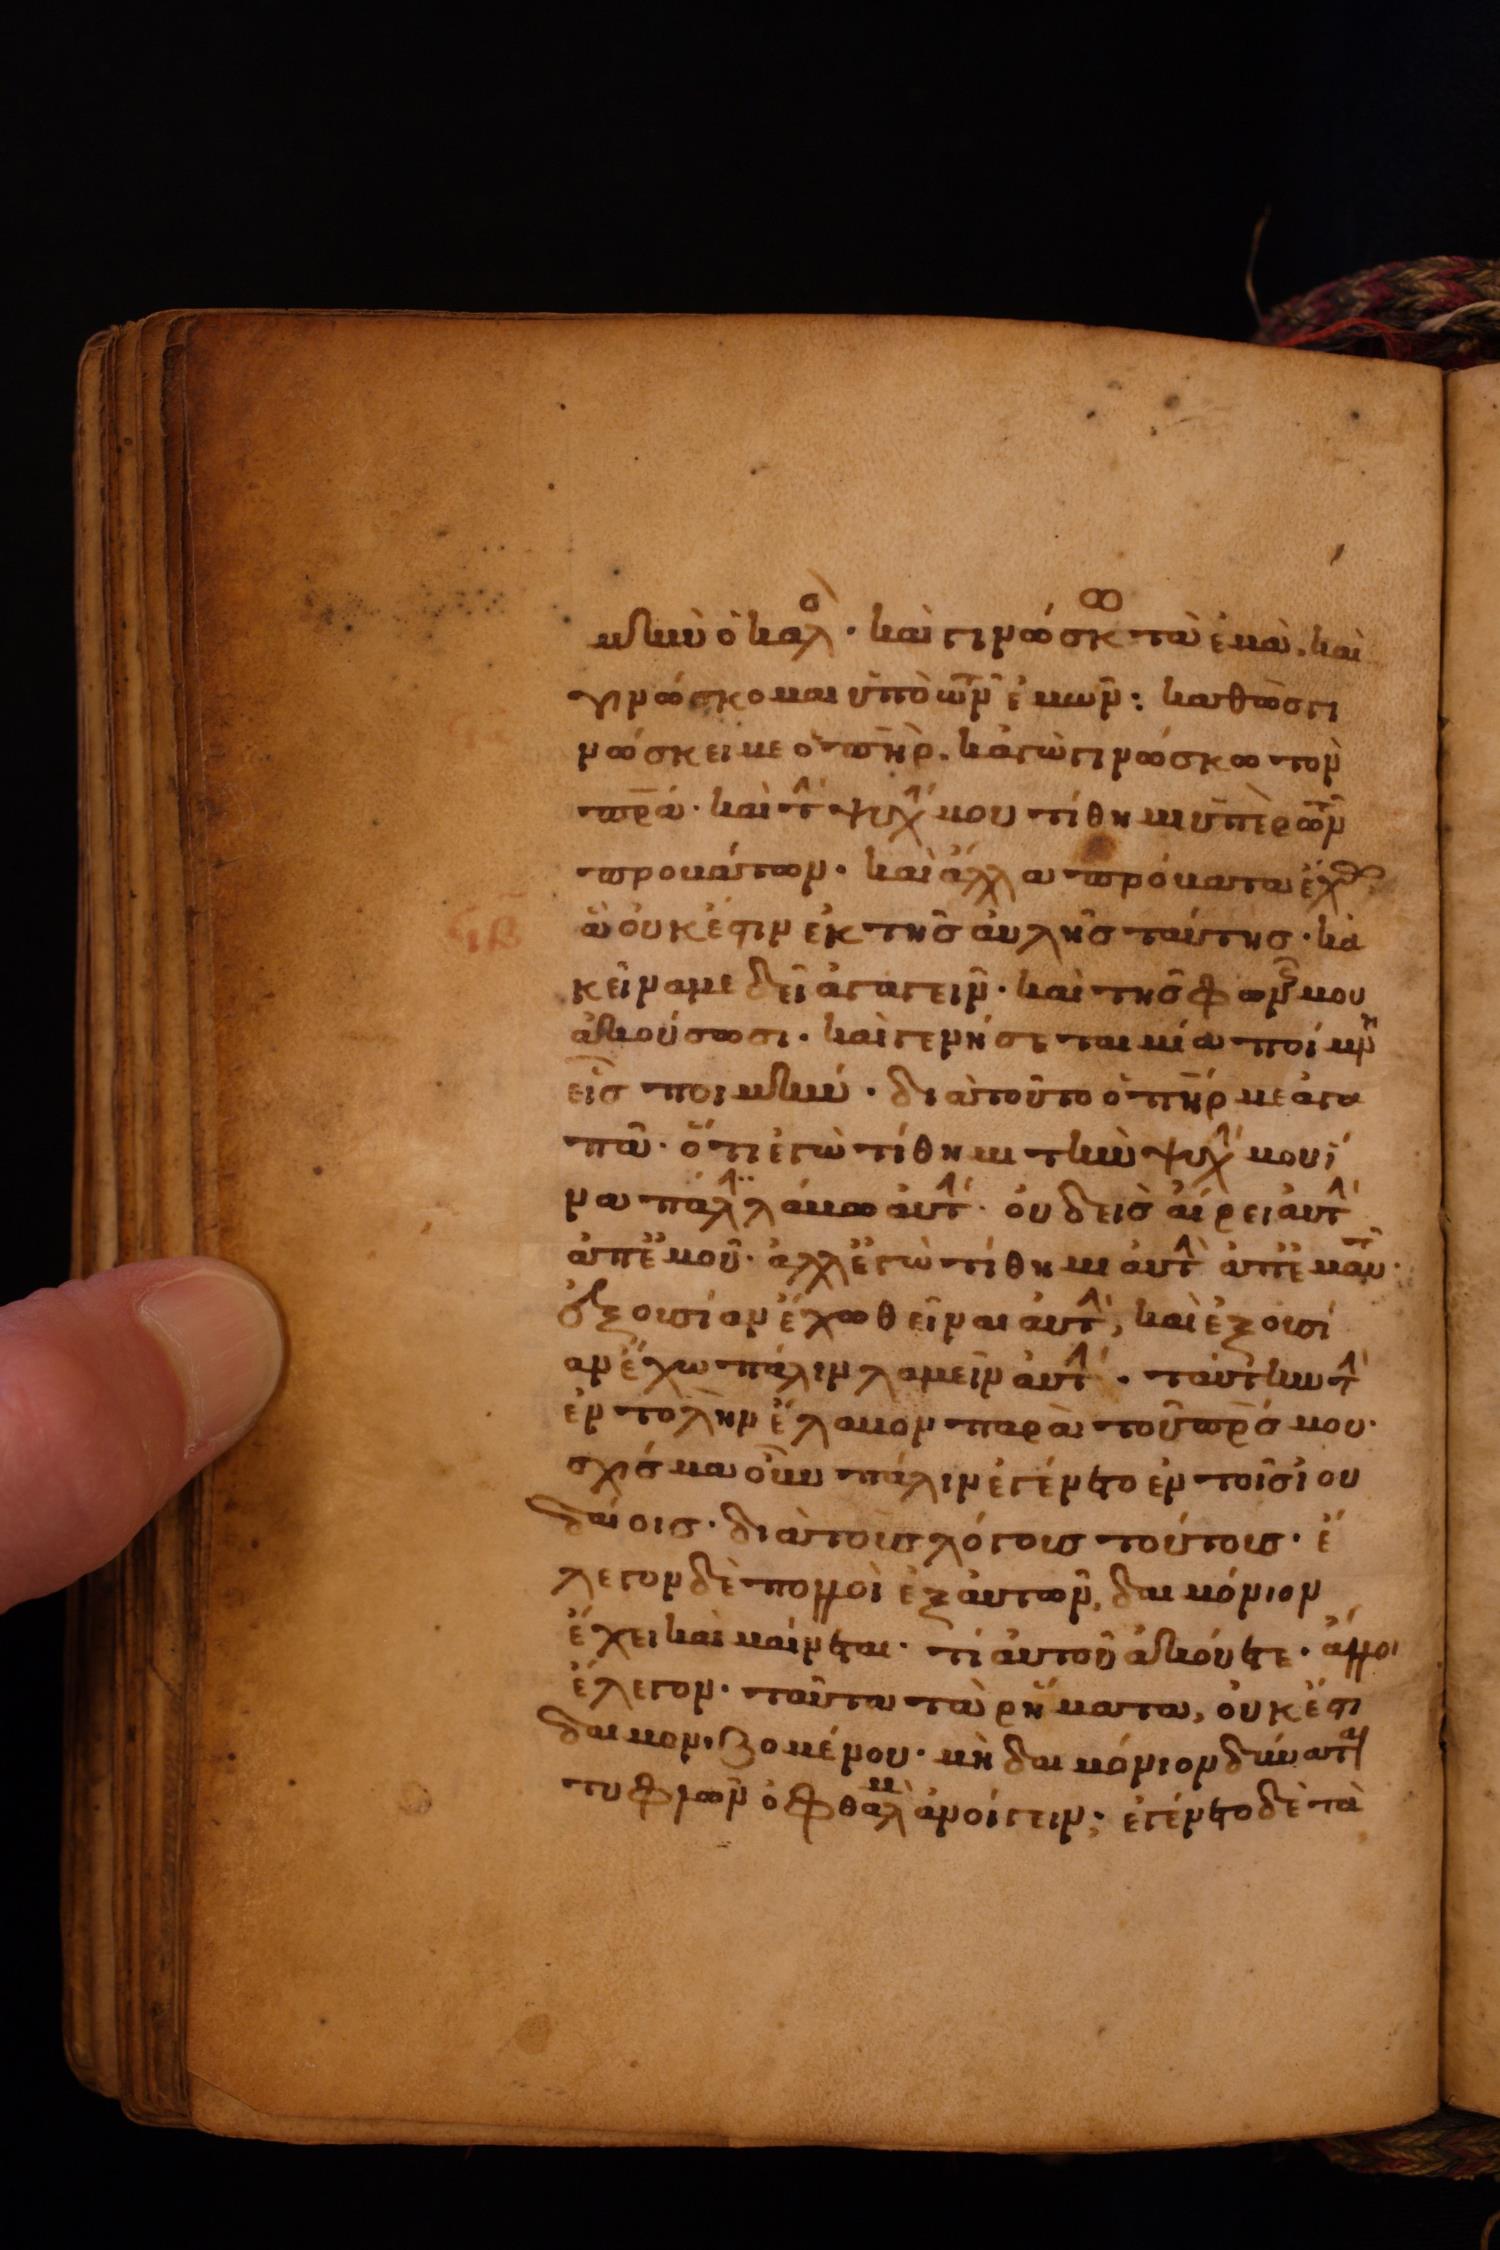 μὴν ὁ καλ<sup>ό</sup> · καὶ γινώσκ<sup>ω</sup> τὰ ἐμὰ, καὶ
γινώσκομαι ὑπὸ τῶν ἐμῶν· καθὼς γι
νώσκει με ὁ π̅η̅ρ̅. κἀγὼ γινώσκω τὸν
π̅ρ̅α̅· καὶ τὴν ψυχήν μου τίθημι ὑπὲρ τῶν
προβάτων· καὶ ἄλλα πρόβατα ἔχω
ἃ οὐκ ἔστιν ἐκ τῆς αὐλῆς ταύτης· κἀ
κεῖνά με δεῖ ἀγαγεῖν· καὶ τῆς φωνῆς μου
ἀκούσωσι· καὶ γενήσεται μία ποίμνη
εἷς ποιμήν· διὰ τοῦτο ὁ π̅η̅ρ̅ με ἀγα
πᾶ· ὅτι ἐγὼ τίθημι τὴν ψυχήν μου ἵ
να πάλιν λάβω αὐτήν· οὐδεὶς αἴρει αὐτὴν
ἀπ' ἐμοῦ· ἀλλ' ἐγὼ τίθημι αὐτὴν ἀπ' ἐμαυτοῦ·
ἐξουσίαν ἔχω θεῖναι αὐτὴν, καὶ ἐξουσί
αν ἔχω πάλιν λαβεῖν αὐτήν· ταύτην τὴν
ἐντολὴν ἔλαβον παρὰ τοῦ π̅ρ̅ς̅ μου·
σχίσμα οὖν πάλιν ἐγένετο ἐν τοῖς ἰου
δαίοις· διὰ τοὺς λόγους τούτους· ἔ
λεγον δὲ πολλοὶ ἐξ αὐτῶν, δαιμόνιον
ἔχει καὶ μαίνεται· τί αὐτοῦ ἀκούετε· ἄλλοι
ἔλεγον· ταῦτα τὰ ῥήματα, οὐκ ἔστι
δαιμονιζομένου· μὴ δαιμόνιον δύναται
τυφλῶν ὀφθαλμ ἀνοίγειν; ἐγένετο δὲ τὰ